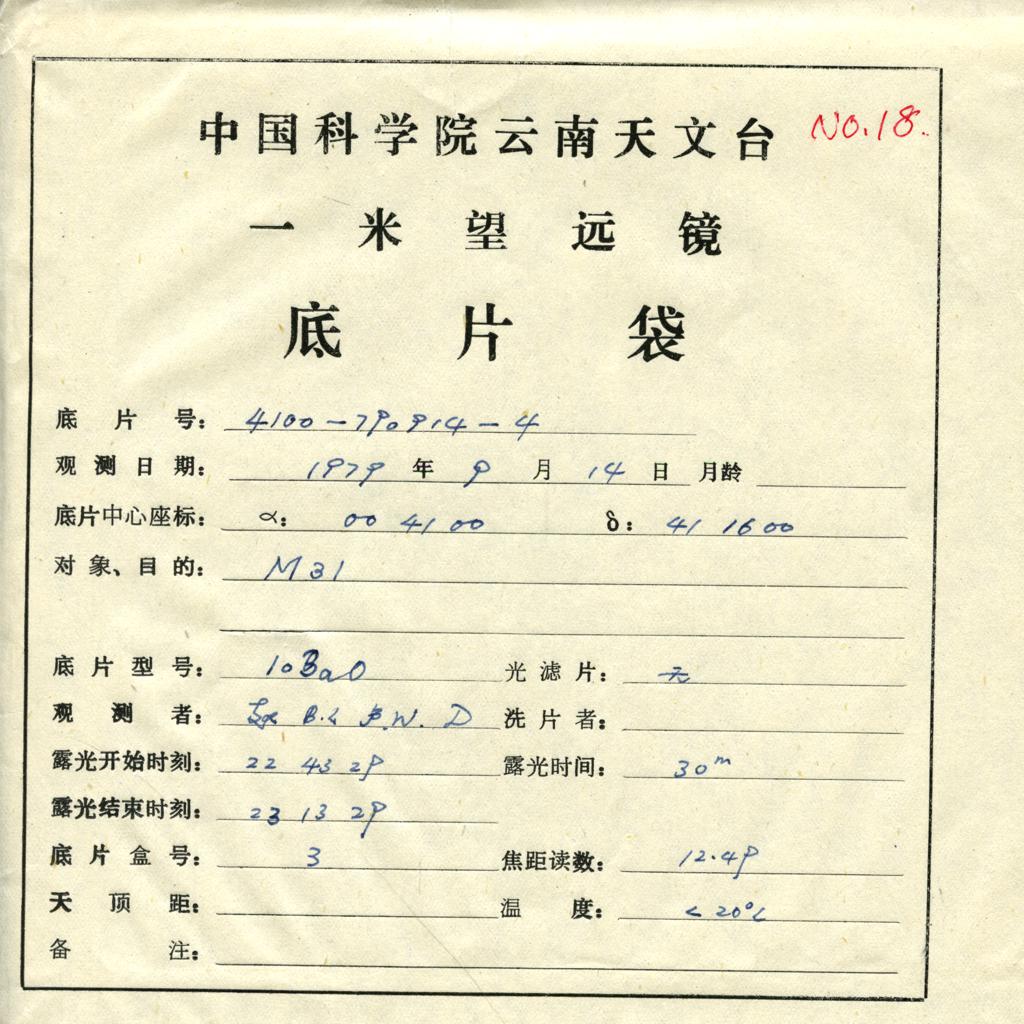 中国科学院云南天文台 NO.18.
一米望远镜
底片袋
底片号： 4100-790914-4
观测日期： 1979 年 9 月 14 日 月龄
底片中心座标： α： 00 41 00 δ： 41 16 00
对象、目的： M31
底片型号： 10BaO 光滤片： 无
观测者： B.W. D 洗片者：
露光开始时刻： 22 43 29 露光时间： 30m
露光结束时刻： 23 13 29
底片盒号： 3 焦距读数： 12.49
天顶距： 温度： < 20°C
备注：